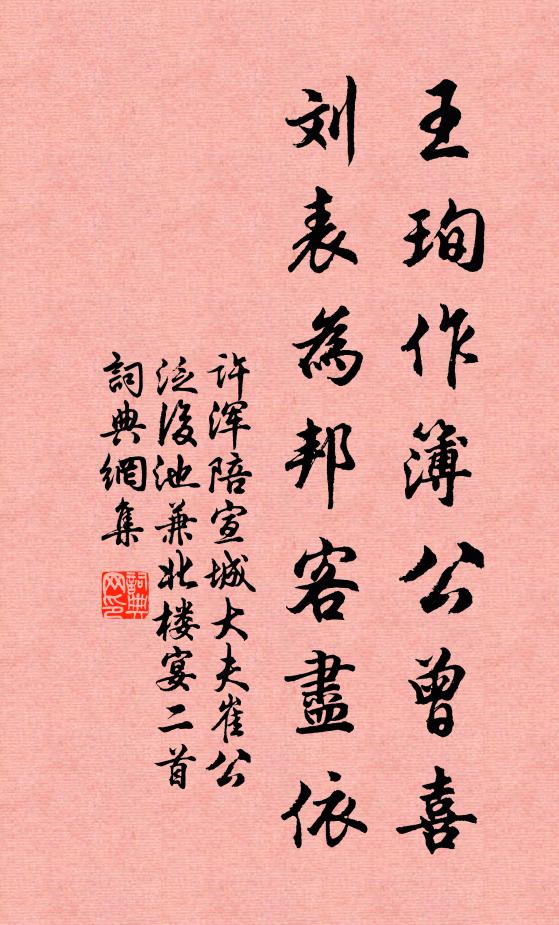 王珣作簿公曾喜
刘表為邦客盡依
许浑陪宣城大夫崔公
泛後池兼北楼宴二首
詞典網集
詞典
网印